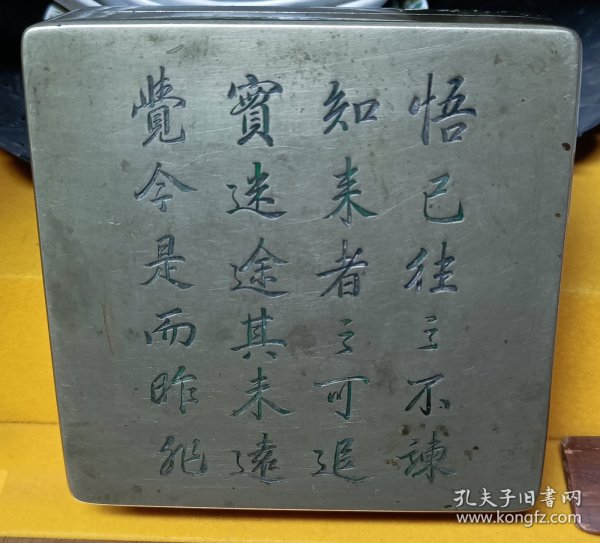 悟已往之不諫
知来者之可追
實迷途其未遠
覺今是而昨非
孔夫子旧书网
www.kongfz.com